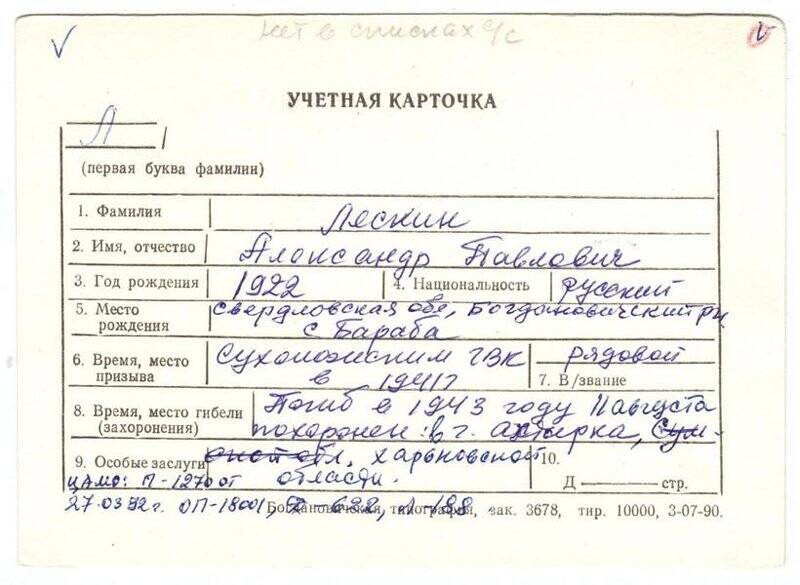 нет в списках с/с
УЧЕТНАЯ КАРТОЧКА
Л
(первая буква фамилии)
1. Фамилия Лескин
2. Имя, отчество Александр Павлович
3. Год рождения 1922 4. Национальность русский
5. Место рождения Свердловская обл, Богдановичский р-н
с Бараба
6. Время, место призыва Сухоложским ГВК
в 1941г
рядовой
7. В/звание
8. Время, место гибели (захоронения) Погиб в 1943 году 11 августа
похоронен: в г. Ахтырка, Сум-
ской обл, Харьковской
9. Особые заслуги области.
10.
Д стр.
ЦАМО: П-1270 от
27.03.92г. ОП-18001, д 622, л 188
Богдановичская типография, зак. 3678, тир. 10000, 3-07-90.